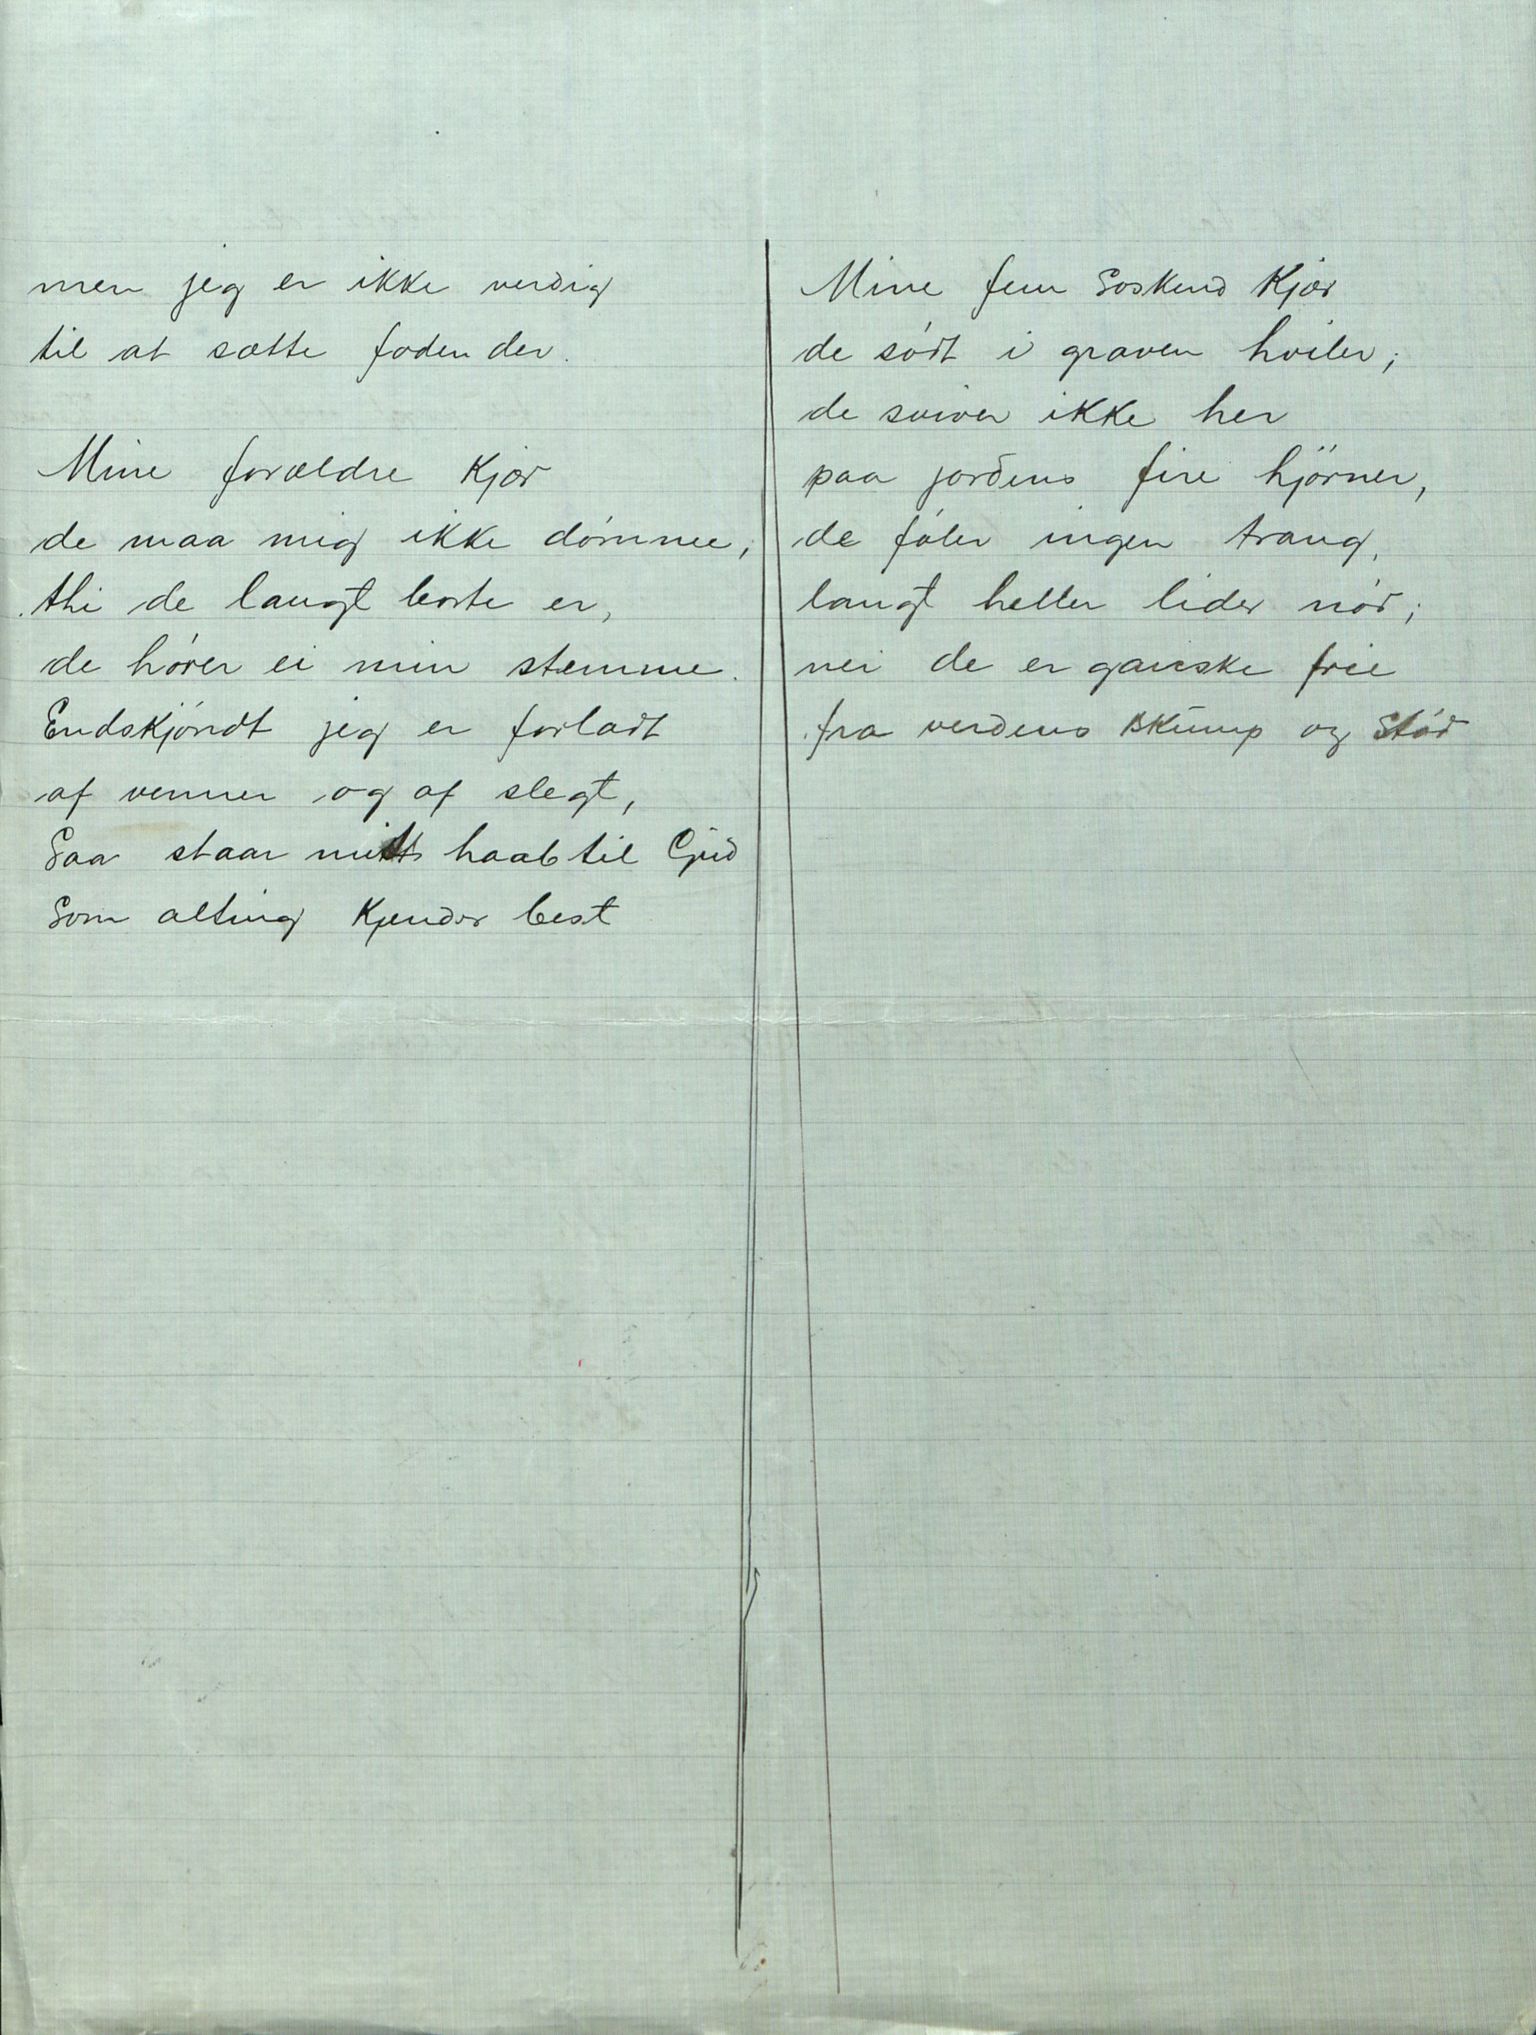 men jeg er ikke verdig
til at sætte foden der.

Mine forældre Kjær
de maa mig ikke dómme,
thi de langt borte er,
de hórer ei min stemme.
Endskjóndt jeg er forladt
af venner og af slegt,
Saa staar mitt haab til Gud
Som alting Kjender best

Mine fem Soskend Kjær
de södt i graven hviler;
de sviver ikke her
paa jordens fire hjörner,
de fóler ingen trang,
langt heller lider nód;
nei de er ganske frie
fra verdens skump og Stód